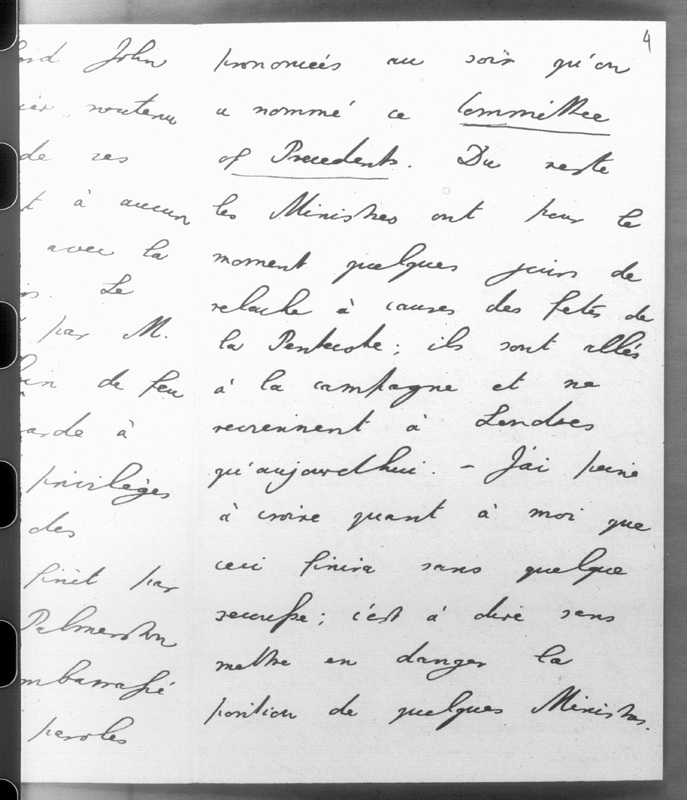 4
John
soutenu
de ses
à aucun
avec la
Le
par M.
de feu
garde à
privilèges
des
finit par
Palmerston
embarrassé
paroles
prononcées au soir qu'on
a nommé ce Committee
of Precedents. Du reste
les Ministres ont pour le
moment quelques jours de
relache à causes des fetes de
la Pentecote; ils sont allés
à la campagne et ne
reviennent à Londres
qu'aujourdhui. – J'ai peine
à croire quant à moi que
ceci finira sans quelque
secousse; c'est à dire sans
mettre en danger la
position de quelques Ministres.